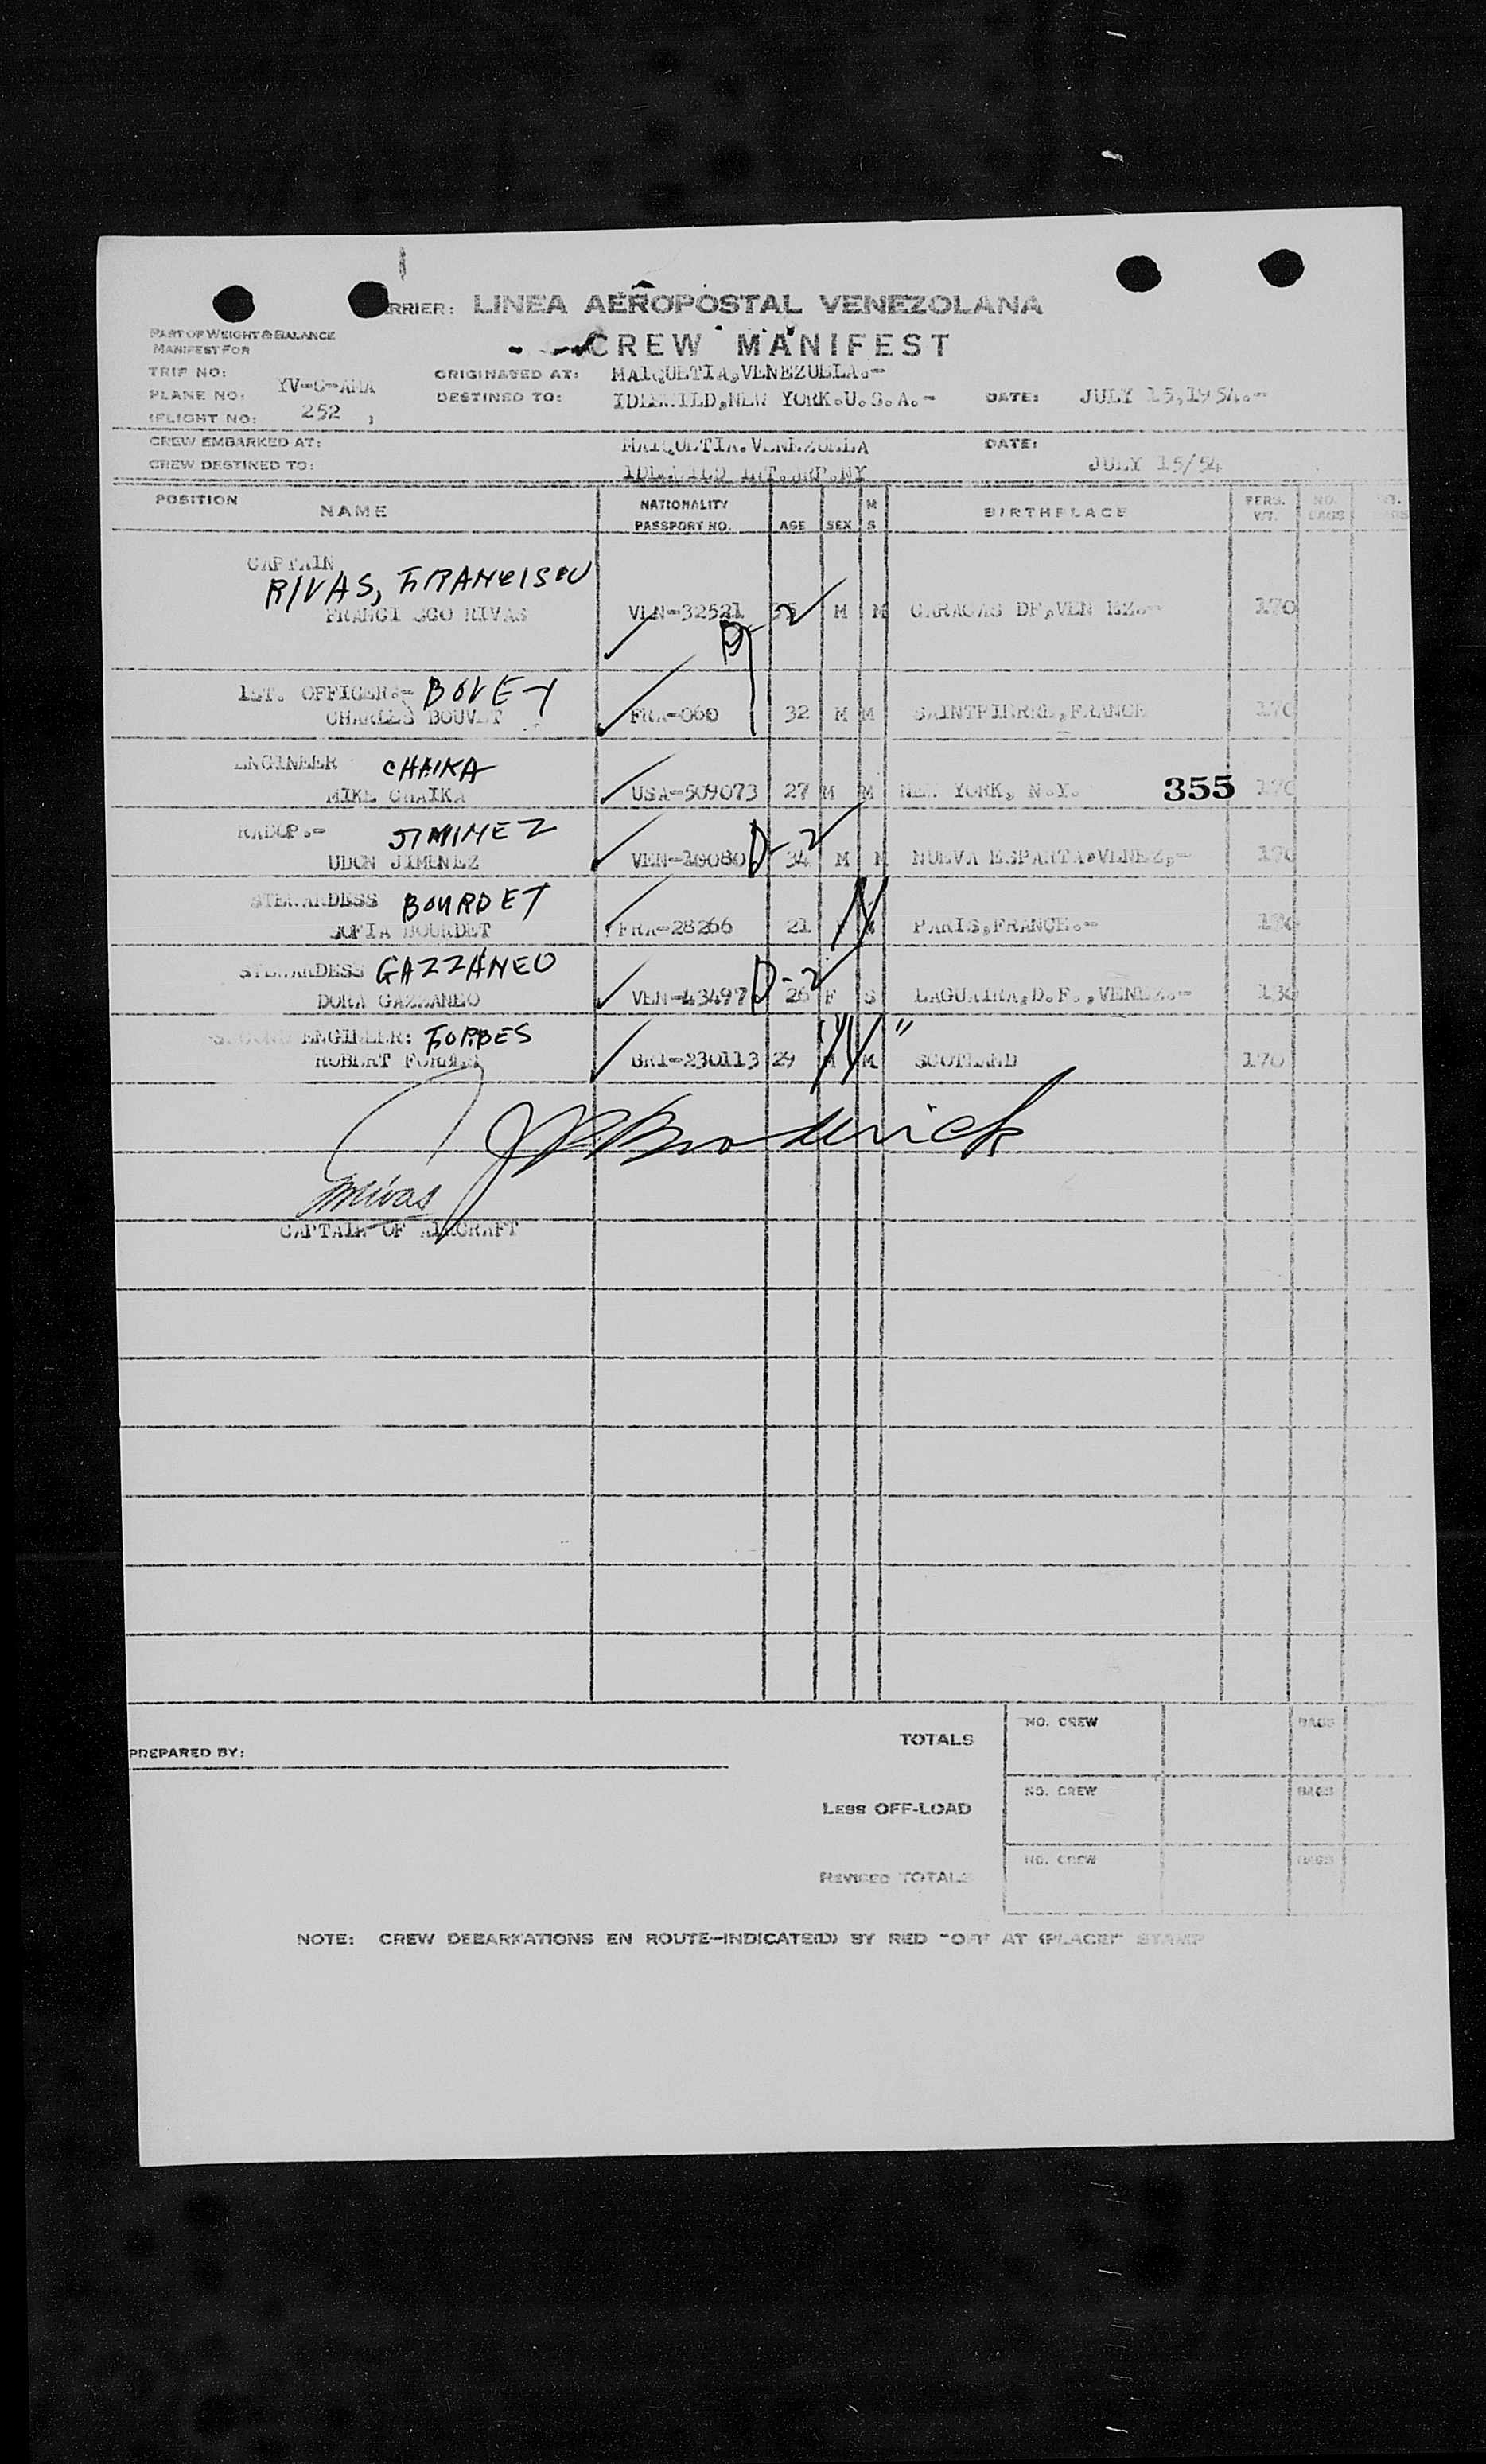 CARRIER: LINEA AEROPOSTAL VENEZOLANA
CREW MANIFEST
PART OF WEIGHT & BALANCE
MANIFEST FOR
TRIP NO: ORIGINATED AT: MAIQUETIA,VENEZUELA.-
PLANE NO: YV-C-AMA DESTINED TO: IDLEWILD,NEW YORK.U.S.A.- DATE: JULY 15,1954.-
(FLIGHT NO: 252 )
CREW EMBARKED AT: MAIQUETIA.VENEZUELA DATE:
CREW DESTINED TO: IDLEWILD INT.ARP.NY JULY 15/54
POSITION NAME NATIONALITY PASSPORT NO. AGE SEX M S BIRTHPLACE PERS. WT. NO. BAGS WT. BAGS
CAPTAIN
RIVAS, FRANCISCO
FRANCISCO RIVAS VEN-32521 D-2 M M CARACAS DF,VENEZ.- 170
1ST. OFFICER.- BOVET
CHARLES BOUVET FRA-060 32 M M SAINTPIERRE,FRANCE 170
ENGINEER CHAIKA
MIKE CHAIKA USA-509073 27 M M NEW YORK, N.Y. 355 170
RADOP.- JIMINEZ
UDON JIMENEZ VEN-19080 D-2 34 M M NUEVA ESPARTA,VENEZ,- 170
STEWARDESS BOURDET
SOFIA BOURDET FRA-28266 21 PARIS,FRANCE.-
STEWARDESS GAZZANEO
DORA GAZZANEO VEN-43497 D-2 26 F S LAGUAIRA,D.F.,VENEZ.- 130
SECOND ENGINEER: FORBES
ROBERT FORBES BRI-230113 29 M M SCOTLAND 170
CAPTAIN OF AIRCRAFT
PREPARED BY:
TOTALS NO. CREW BAGS
LESS OFF-LOAD NO. CREW BAGS
REVISED TOTALS NO. CREW BAGS
NOTE: CREW DEBARKATIONS EN ROUTE-INDICATE(D) BY RED "OFF AT (PLACE)" STAMP